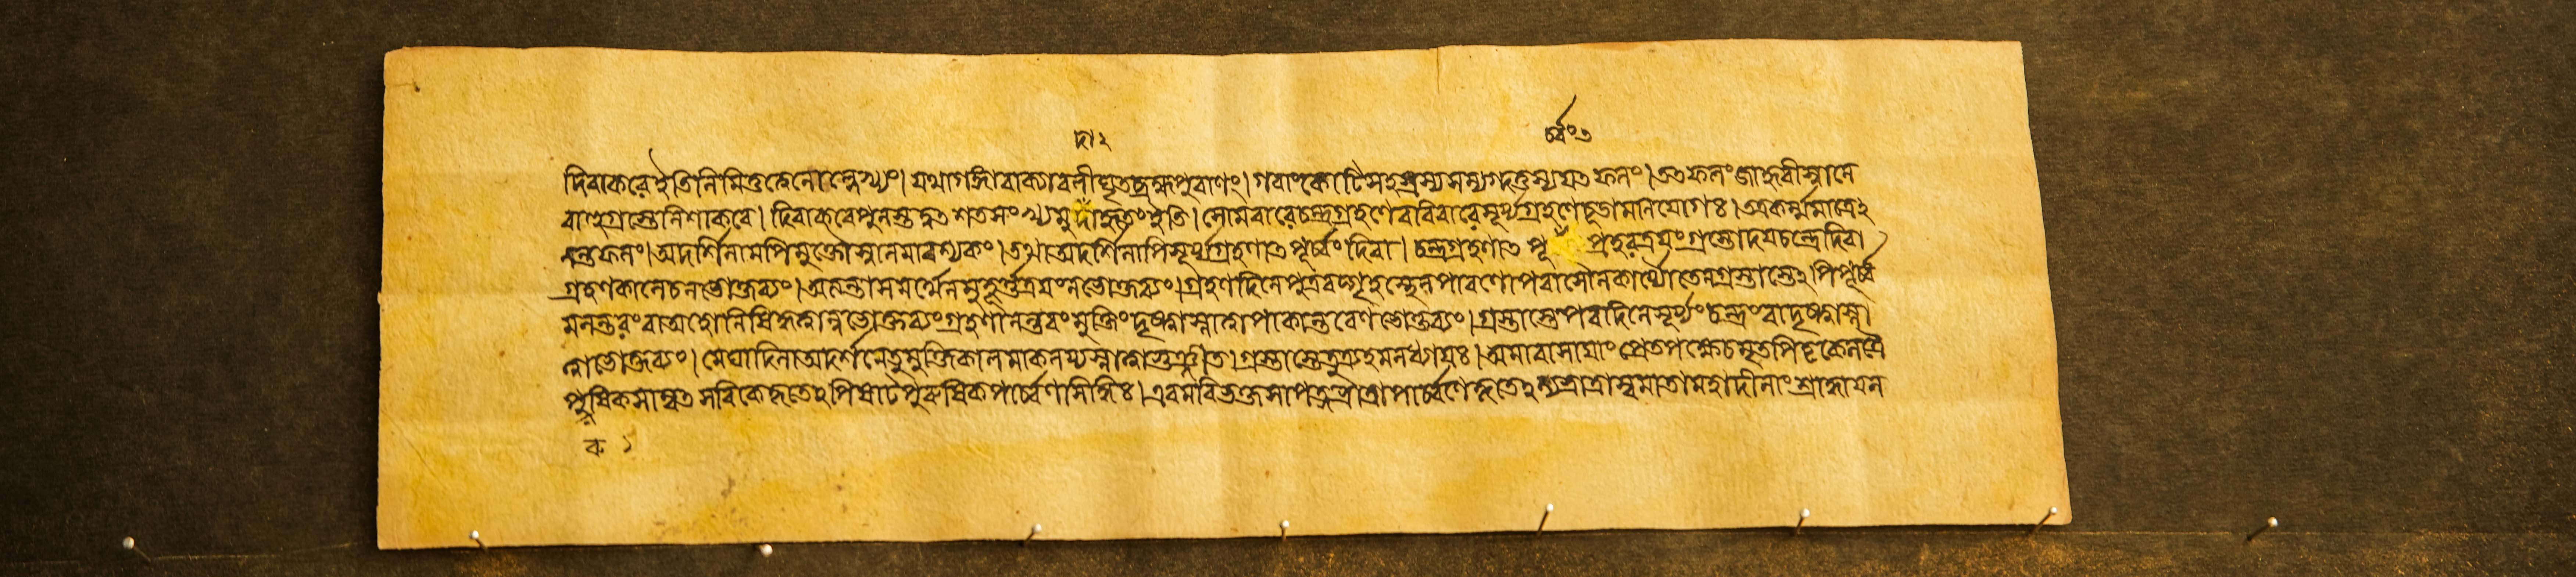 দা ২
র্চ্চং ৩
দিবাকরে ইতি নিমিত্তত্বেনোল্লেখ্যং। যথা গঙ্গাবাক্যাবলীধৃতব্রহ্মপুরাণং। গবাং কোটিসহস্রস্য সম্যগ্দত্তস্য যৎ ফলং। তৎ ফলং জাহ্নবীস্নানে
রাহুগ্রস্তে নিশাকরে। দিবাকরে পুনস্তদ্বৎ শতসংখ্যমুদাহৃতং ইতি। সোমবারে চন্দ্রগ্রহণে রবিবারে সূর্য্যগ্রহণে চূড়ামনিযোগঃ। অত্র কর্ম্মমাত্রে২
নন্তফলং। অদর্শিনামপি মুক্তৌ স্নানমাবশ্যকং। তথা অদর্শিনাপি সূর্য্যগ্রহণাৎ পূর্ব্বং দিবা। চন্দ্রগ্রহণাৎ পূ প্রহরত্রয়ং গ্রস্তোদয়চন্দ্রে দিবা
গ্রহণকালে চ ন ভোক্তব্যং। অত্যন্তাসমর্থেন মুহূর্ত্তত্রয়ং ন ভোক্তব্যং। গ্রহণদিনে পুত্রবদ্গৃহস্থেন পারণোপবাসৌ ন কার্য্যৌ তেন গ্রস্তাস্তে২পি পূর্ব্ব
মনন্তরং বা অহোনিষিদ্ধত্বান্ন ভোক্তব্যং গ্রহণানন্তরং মুক্তিং দৃষ্ট্বা স্নাত্বা পাকান্তরেণ ভোক্তব্যং। গ্রস্তাস্তে পরদিনে সূর্য্যং চন্দ্রং বা দৃষ্ট্বা স্না
ত্বা ভোক্তব্যং। মেঘাদিনা অদর্শনে তু মুক্তিকালমাকলয্য স্নাত্বা ভুঞ্জীত। গ্রস্তাস্তে তু ত্র্যহমনধ্যায়ঃ। অমাবাস্যায়াং প্রেতপক্ষে চ মৃতপিতৃকেন ত্রৈ
পুরুষিক সাম্বৎসরিকে কৃতে২পি ষাট্পুরুষিকপার্ব্বণসিদ্ধিঃ। এবমবিভক্ত পার্ব্বণে কৃতে২ মাতামহাদীনাং শ্রাদ্ধা
ক ১